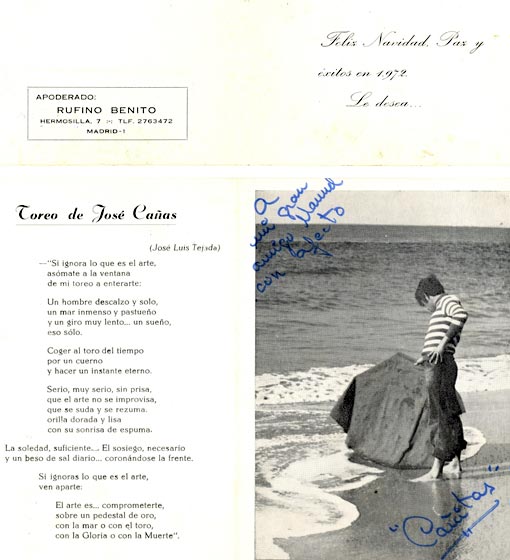 Feliz Navidad, Paz y
éxitos en 1972.
Le desea...
APODERADO:
RUFINO BENITO
HERMOSILLA, 7 :-: TLF. 2763472
MADRID-1
Toreo de José Cañas
(José Luis Tejada)
—"Si ignora lo que es el arte,
asómate a la ventana
de mi toreo a enterarte:
Un hombre descalzo y solo,
un mar inmenso y pastueño
y un giro muy lento... un sueño,
eso sólo.
Coger al toro del tiempo
por un cuerno
y hacer un instante eterno.
Serio, muy serio, sin prisa,
que el arte no se improvisa,
que se suda y se rezuma.
orilla dorada y lisa
con su sonrisa de espuma.
La soledad, suficiente... El sosiego, necesario
y un beso de sal diario... coronándose la frente.
Si ignoras lo que es el arte,
ven aparte:
El arte es... comprometerte,
sobre un pedestal de oro,
con la mar o con el toro,
con la Gloria o con la Muerte".
A
mi gran
amigo Manuel
con afecto
"Cañitas"